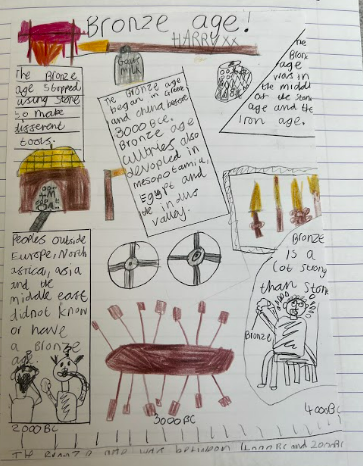 Bronze age!
HARRY xx
The Bronze
age stopped
using stone
to make
different
tools.
The Bronze age
began in Greece
and china before
3000 BCE.
Bronze age
cultries also
devoloped in
mesopotamia,
Egypt and
the indus
valley.
The
Bronze
age
was in
the middle
of the stone
age and the
iron age.
Peoples outside
Europe, North
africa, asia
and the
middle east
did not know
or have
a Bronze
age.
Bronze
is a
lot strong
than stone
Bronze
2000BC
3000BC
4000BC
The Bronze age was between 4000BC and 2000BC